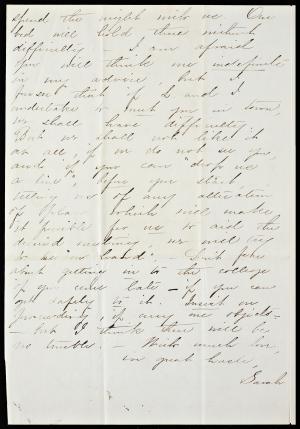 spend the night with us. Our
bed will hold three without
difficulty — I am afraid
you will think me
in my advice, but I
that if L and I
undertake to meet you in town,
we shall have difficulty.
But we shall not like it
at all, if we do not see you,
and if you can "drop us
a line", before you start,
telling us of any alteration
of plan which will make
it possible for us to aid the
desired meeting, we will try
to be "on hand". — Don't fear
about getting in to the college
if you come late — if you can
get safely to it. Insist on
proceeding, if any one objects —
— but I think there will be
no trouble. — With much love,
in great haste,
Sarah